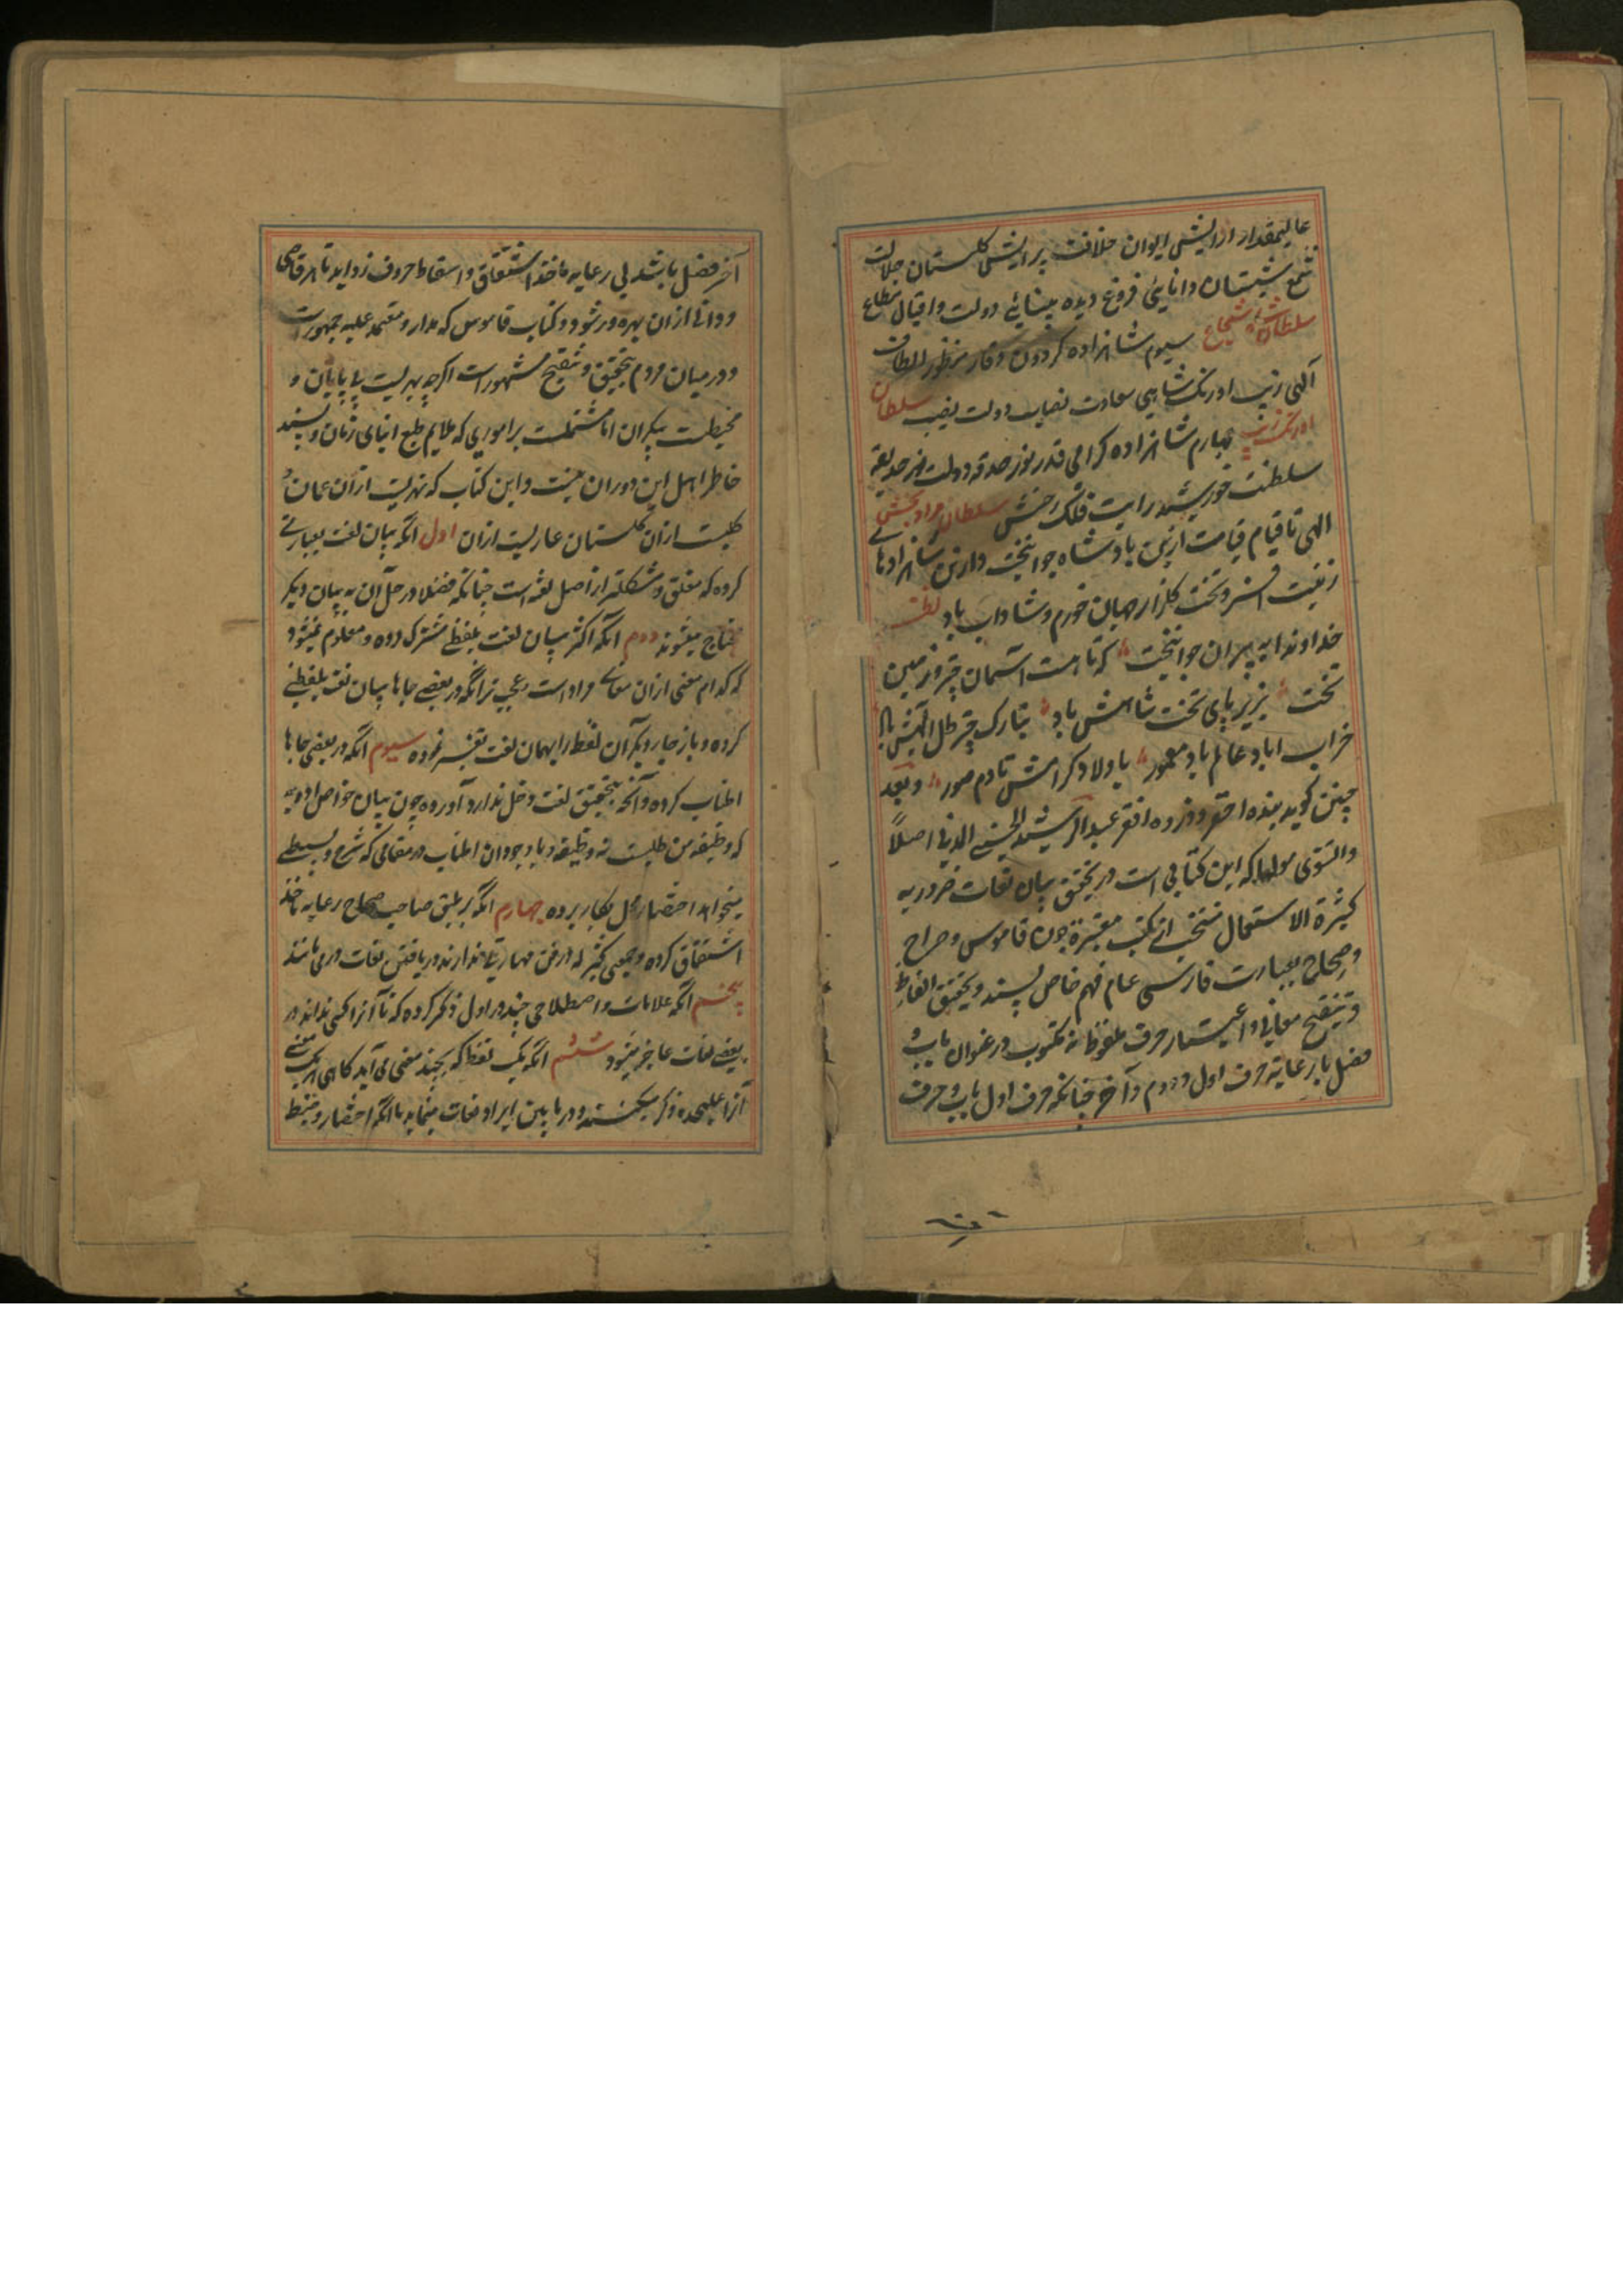 عالیمقدار ارایش ایوان خلافت پرایش کلستان جلالت
شمع شبستان دانایی فروغ دیده بینائی دولت و اقبال مطاع
سلطان شاه شجاع سیوم شاهزاده کردون وقار منظور الطاف
آلهی زیب اورنک شاهی سعادت نصاب دولت نصیب سلطان
اورنک زیب چهارم شاهزاده کرامی قدر نور حدقه دولت نور حدیقه
سلطنت خورشید رایت فلک رخش سلطان مراد بخش
الهی تا قیام قیامت ازین بادشاه جوانبخت و ازین شاهزادهای
زینت افسر و تخت کلزار جهان خورم و شاداب باد
خداوندا به پیران جوانبخت که تا هست آسمان چتر و زمین
تخت بزیر پای تخت شاهنش باد تبارک چتر ظل الهیش باد
خراب اباد عالم باد معمور باولاد کرامش تا دم صور و بعد
چنین کوید بنده احقر و ذره افقر عبد الرشید الحسینی المدنی اصلاً
والتتوی مولدا که این کتابی است در تحقیق بیان لغات ضروریه
کثیرة الاستعمال منتخب از کتب معتبرة چون قاموس و صراح
و صحاح بعبارت فارسی عام فهم خاص پسند و تحقیق الفاظ
و تنقیح معانی و اعتبار حرف ملفوظ نه مکتوب در عنوان باب و
فصل با رعایة حرف اول و دوم و آخر چنانکه حرف اول باب و حرف
آخر فصل باشد بی رعایه ماخذ اشتقاق و اسقاط حروف زواید تا هر قاصی
و دانی ازان بهره ور شود و کتاب قاموس که مدار و معتمد علیه جمهورست
و در میان مردم بتحقیق و تنقیح مشهور است اکرچه بحریست بی پایان و
محیطیست بیکران اما مشتملست بر اموری که ملایم طبع ابنای زمان و پسند
خاطر اهل این دوران نیست و این کتاب که نهریست ازان عمان و
کلیست ازان کلستان عاریست ازان اول آنکه بیان لغت بعبارتی
کرده که مغلق و مشکلتر از اصل لغة است چنانکه فضلا در حل آن به بیان دیکر
محتاج میشوند دوم آنکه اکثر بیان لغت بلفظی مشترک کرده و معلوم نمیشود
که کدام معنی ازان معانی مراد است و عجب تر آنکه در بعضی جاها بیان لغت بلفظی
کرده و باز جای دیکر آن لفظ را بهمان لغت تفسیر نموده سیوم آنکه در بعضی جاها
اطناب کرده و آنچه بتحقیق لغت دخل ندارد آورده چون بیان خواص ادویه
که وظیفه من طلبست نه وظیفه و با وجود ان اطناب در مقامی که شرح و بسطی
میخواهد اختصار مخل بکار برده چهارم آنکه بر طبق صاحب صحاح رعایه ماخذ
اشتقاق کرده و جمعی کثیر که در فن مهارتی ندارند در یافتن لغات در می مانند
پنجم آنکه علامات و اصطلاحی چند در اول ذکر کرده که تا آنرا کسی نداند در
بعضی لغات عاجز میشود ششم آنکه یک لفظ که بچند معنی می آید کاهی هر یک معنی
آنرا علیحده ذکر میکند و در مابین ایراد لغات مینماید با آنکه اختصار و ضبط